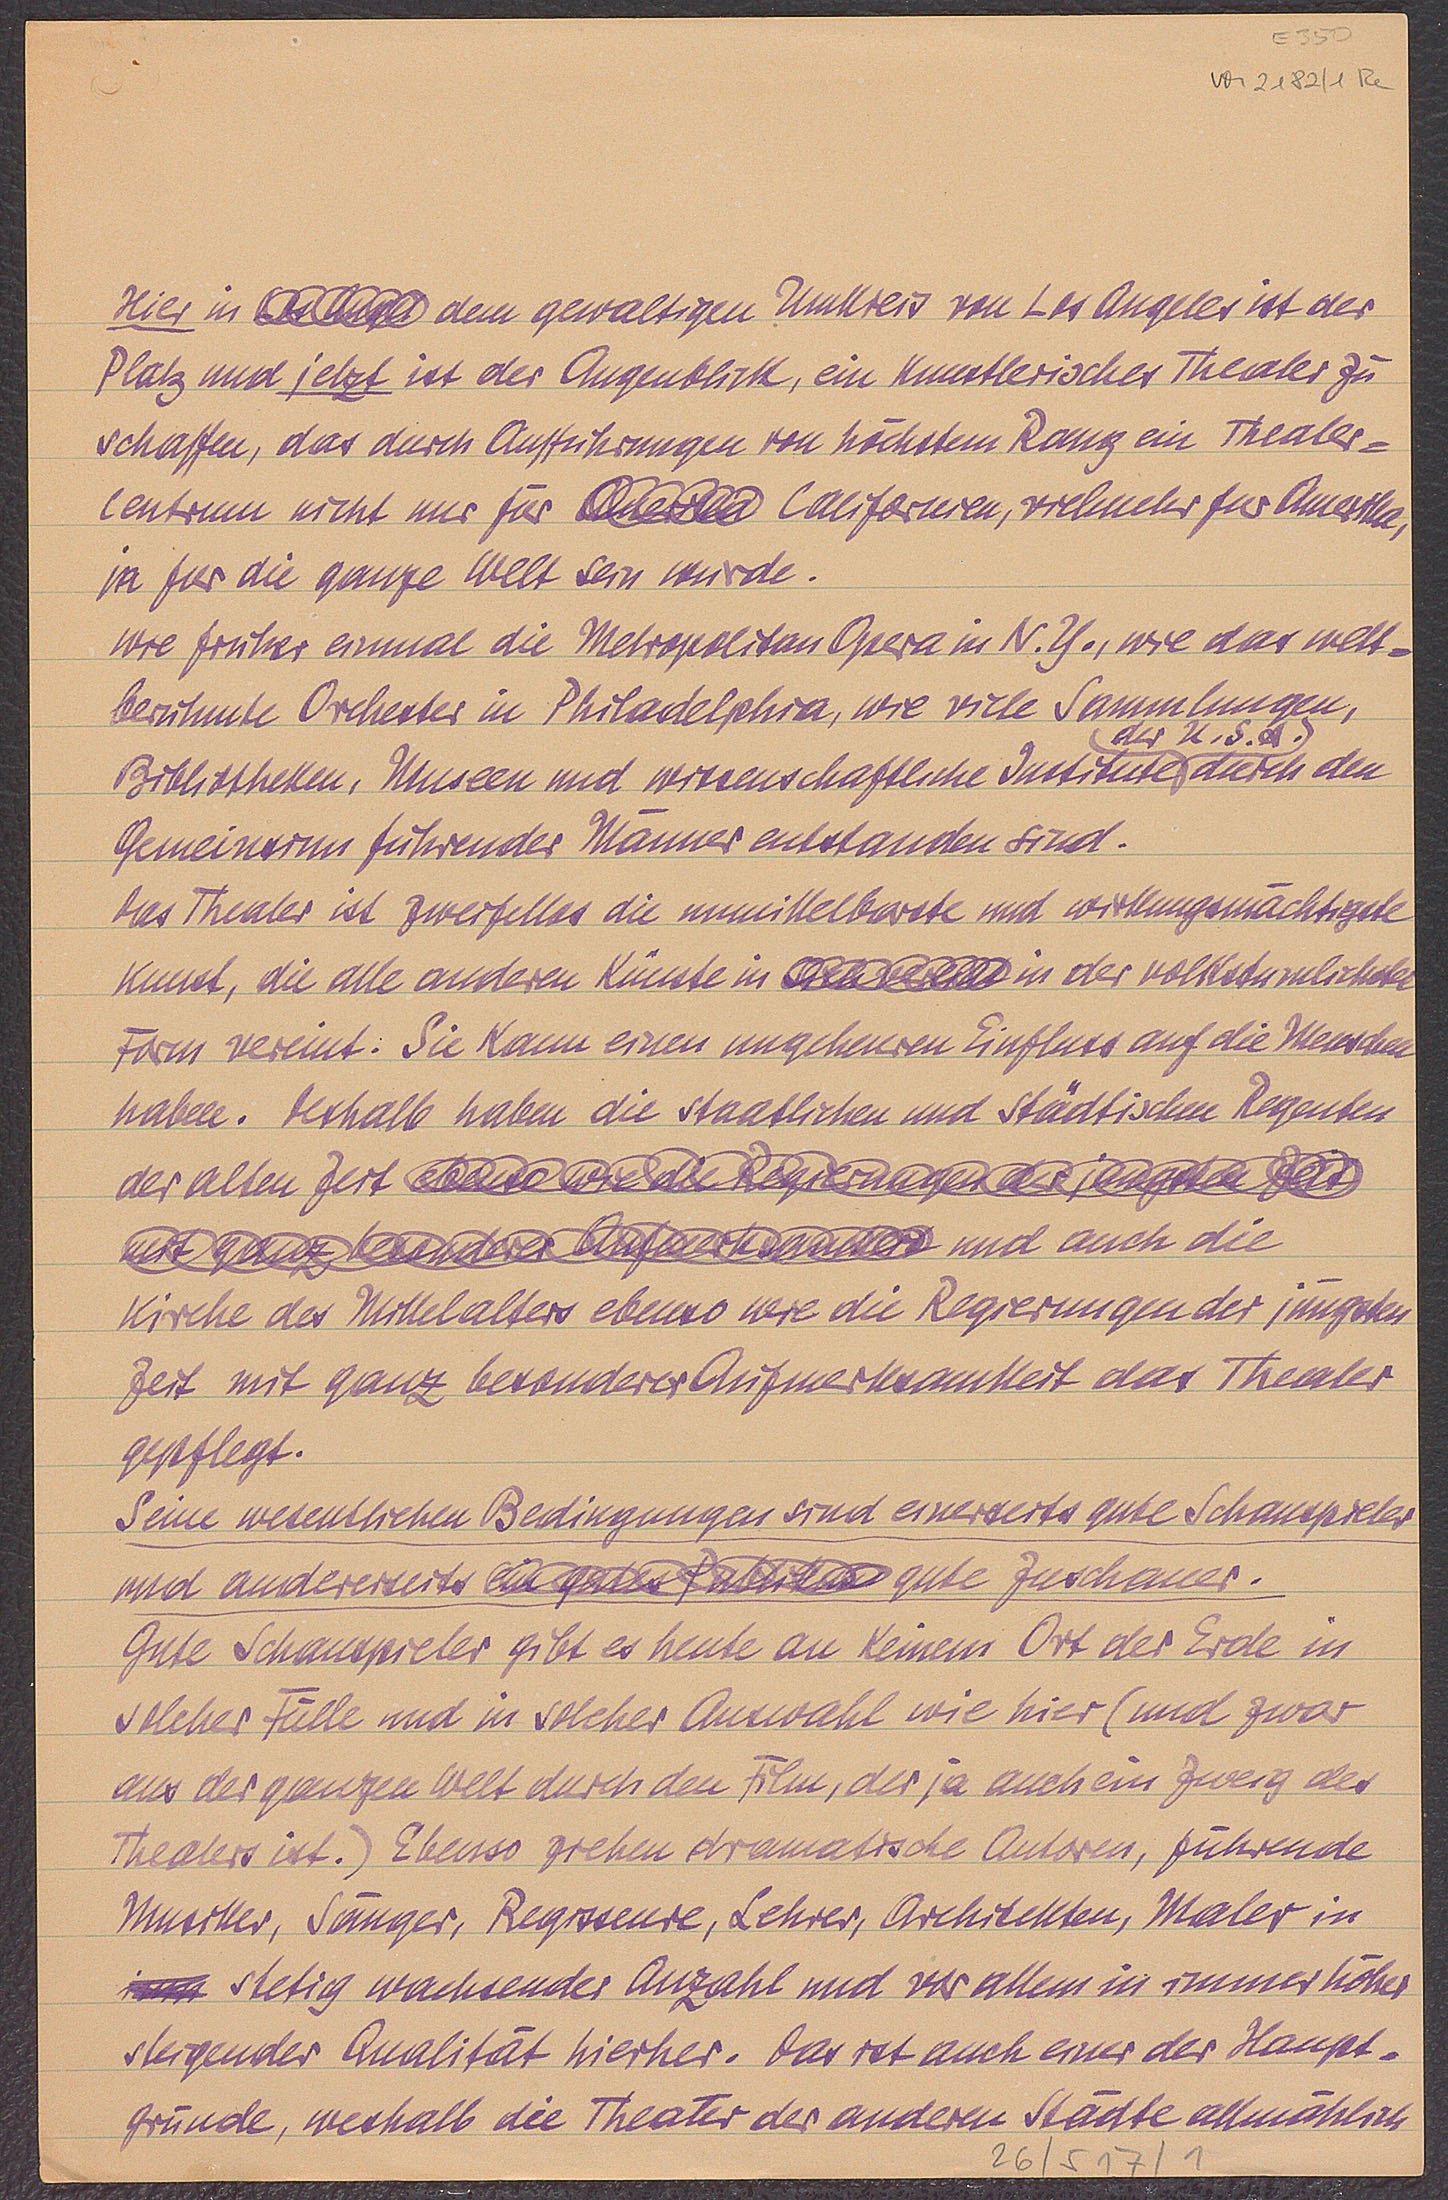 E 350
Vm 2182/1 Re
Hier in Los Angel dem gewaltigen Umkreis von Los Angeles ist der
Platz und jetzt ist der Augenblick, ein künstlerisches Theater zu
schaffen, das durch Aufführungen von höchstem Rang ein Theater=
centrum nicht nur für Amerika Californien, vielmehr für Amerika,
ja für die ganze Welt sein würde.
Wie früher einmal die Metropolitan Opera in N.Y., wie das welt=
berühmte Orchester in Philadelphia, wie viele Sammlungen,
der U.S.A.
Bibliotheken, Museen und wissenschaftliche Institute durch den
Gemeinsinn führender Männer entstanden sind.
Das Theater ist zweifellos die unmittelbarste und wirkungsmächtigste
Kunst, die alle anderen Künste in sich vereint in der volkstümlichsten
Form vereint. Sie kann einen ungeheuren Einfluss auf die Menschen
haben. Deshalb haben die staatlichen und städtischen Regenten
der alten Zeit ebenso wie die Regierungen der jüngsten Zeit
mit ganz besonderer Aufmerksamkeit und auch die
Kirche des Mittelalters ebenso wie die Regierungen der jüngsten
Zeit mit ganz besonderer Aufmerksamkeit das Theater
gepflegt.
Seine wesentlichen Bedingungen sind einerseits gute Schauspieler
und andererseits ein gutes Publikum gute Zuschauer.
Gute Schauspieler gibt es heute an keinem Ort der Erde in
solcher Fülle und in solcher Auswahl wie hier (und zwar
aus der ganzen Welt durch den Film, der ja auch ein Zweig des
Theaters ist.) Ebenso ziehen dramatische Autoren, führende
Musiker, Sänger, Regisseure, Lehrer, Architekten, Maler in
stetig wachsender Anzahl und vor allem in immer höher
steigender Qualität hierher. Das ist auch einer der Haupt=
gründe, weshalb die Theater der anderen Städte allmählich
26/517/1